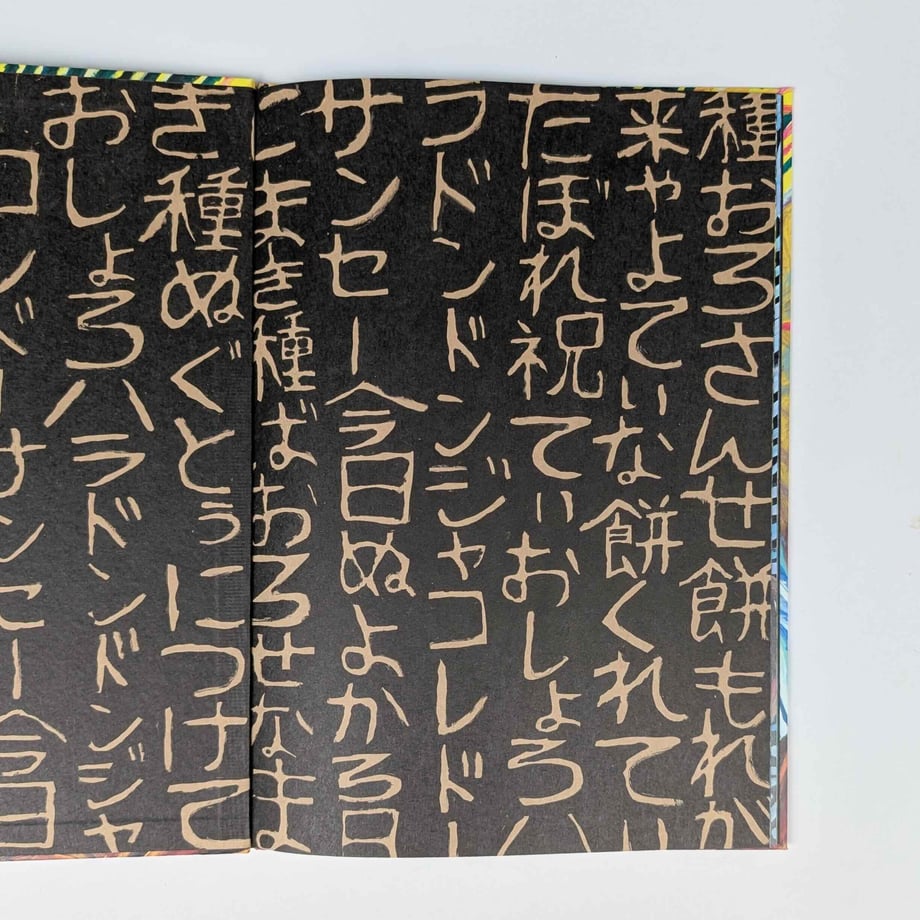 種おろさんせ餅もれが
来ゃよてぃな餅くれてぃ
たぼれ祝てぃおしょろハ
ラドンドンジャコレドー
サンセー今日ぬよかる日
にまき種ばおろせなま
き種ぬぐとぅにつけて
おしょろハラドンドンジャ
コレドーサンセー今日